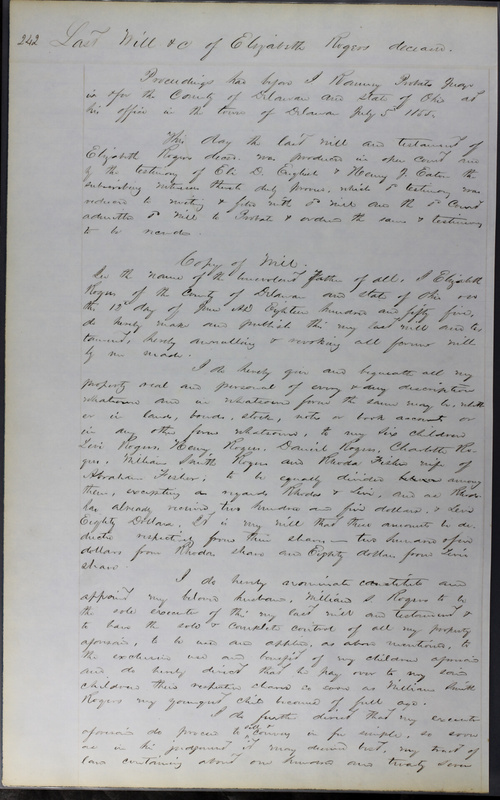 242 Last Will &c of Elizabeth Rogers deceasd.
Proceedings had before J Romery Probate Judge
in & for the County of Delaware and State of Ohio at
his office in the town of Delaware July 5th 1855.
This day the last will and testament of
Elizabeth Rogers decsd. was produced in open court and
by the testimony of D. & Henry J. Eaton the
subscribing witnesses thereto duly proven, which sd testimony was
reduced to writing & filed with sd will and the sd Court
admitted sd Will to Probate & orders the same & testimony
to be recorded.
Copy of Will.
In the name of the benevolent Father of all, I Elizabeth
Rogers of the County of Delaware and state of Ohio on
this 12th day of June AD Eighteen hundred and fifty five,
do hereby make and publish this my last will and tes
tament, hereby annulling & revoking all former wills
by me made.
I do hereby give and bequeath all my
property real and personal of every & any discription
whatsoever and in whatsoever form the same may be, wheth
er in lands, bonds, stocks, notes or book accounts or
in any other form whatsoever, to my six children
Levi Rogers, Henry Rogers, Daniel Rogers, Charlotte Ro-
gers, William Smith Rogers and Rhoda Fisher wife of
Abraham Fisher, to be equally divided among
them, excepting as regards Rhoda & Levi, and as Rhoda
has already received two hundred and five dollars, & Levi
Eighty Dollars, It is my will that these amounts be de-
ducted respectively from their shares, two hundred & five
dollars from Rhodas share and Eighty dollars from Levis
share.
I do hereby nominate constitute and
appoint my beloved husband, William S. Rogers to be
the sole executor of this my last will and testament &
to have the sole & complete control of all my property
aforesaid, to be used and applied, as above mentioned, to
the exclusive use and benefit of my children aforesaid
and do hereby direct that he pay over to my said
children their respective shares as soon as William Smith
Rogers my youngest child becomes of full age.
I do further direct that my executor
aforesaid do proceed to sell & convey in fee simple, so soon
as in his judgment it may deemed best, my tract of
land containing about one hundred and twenty seven